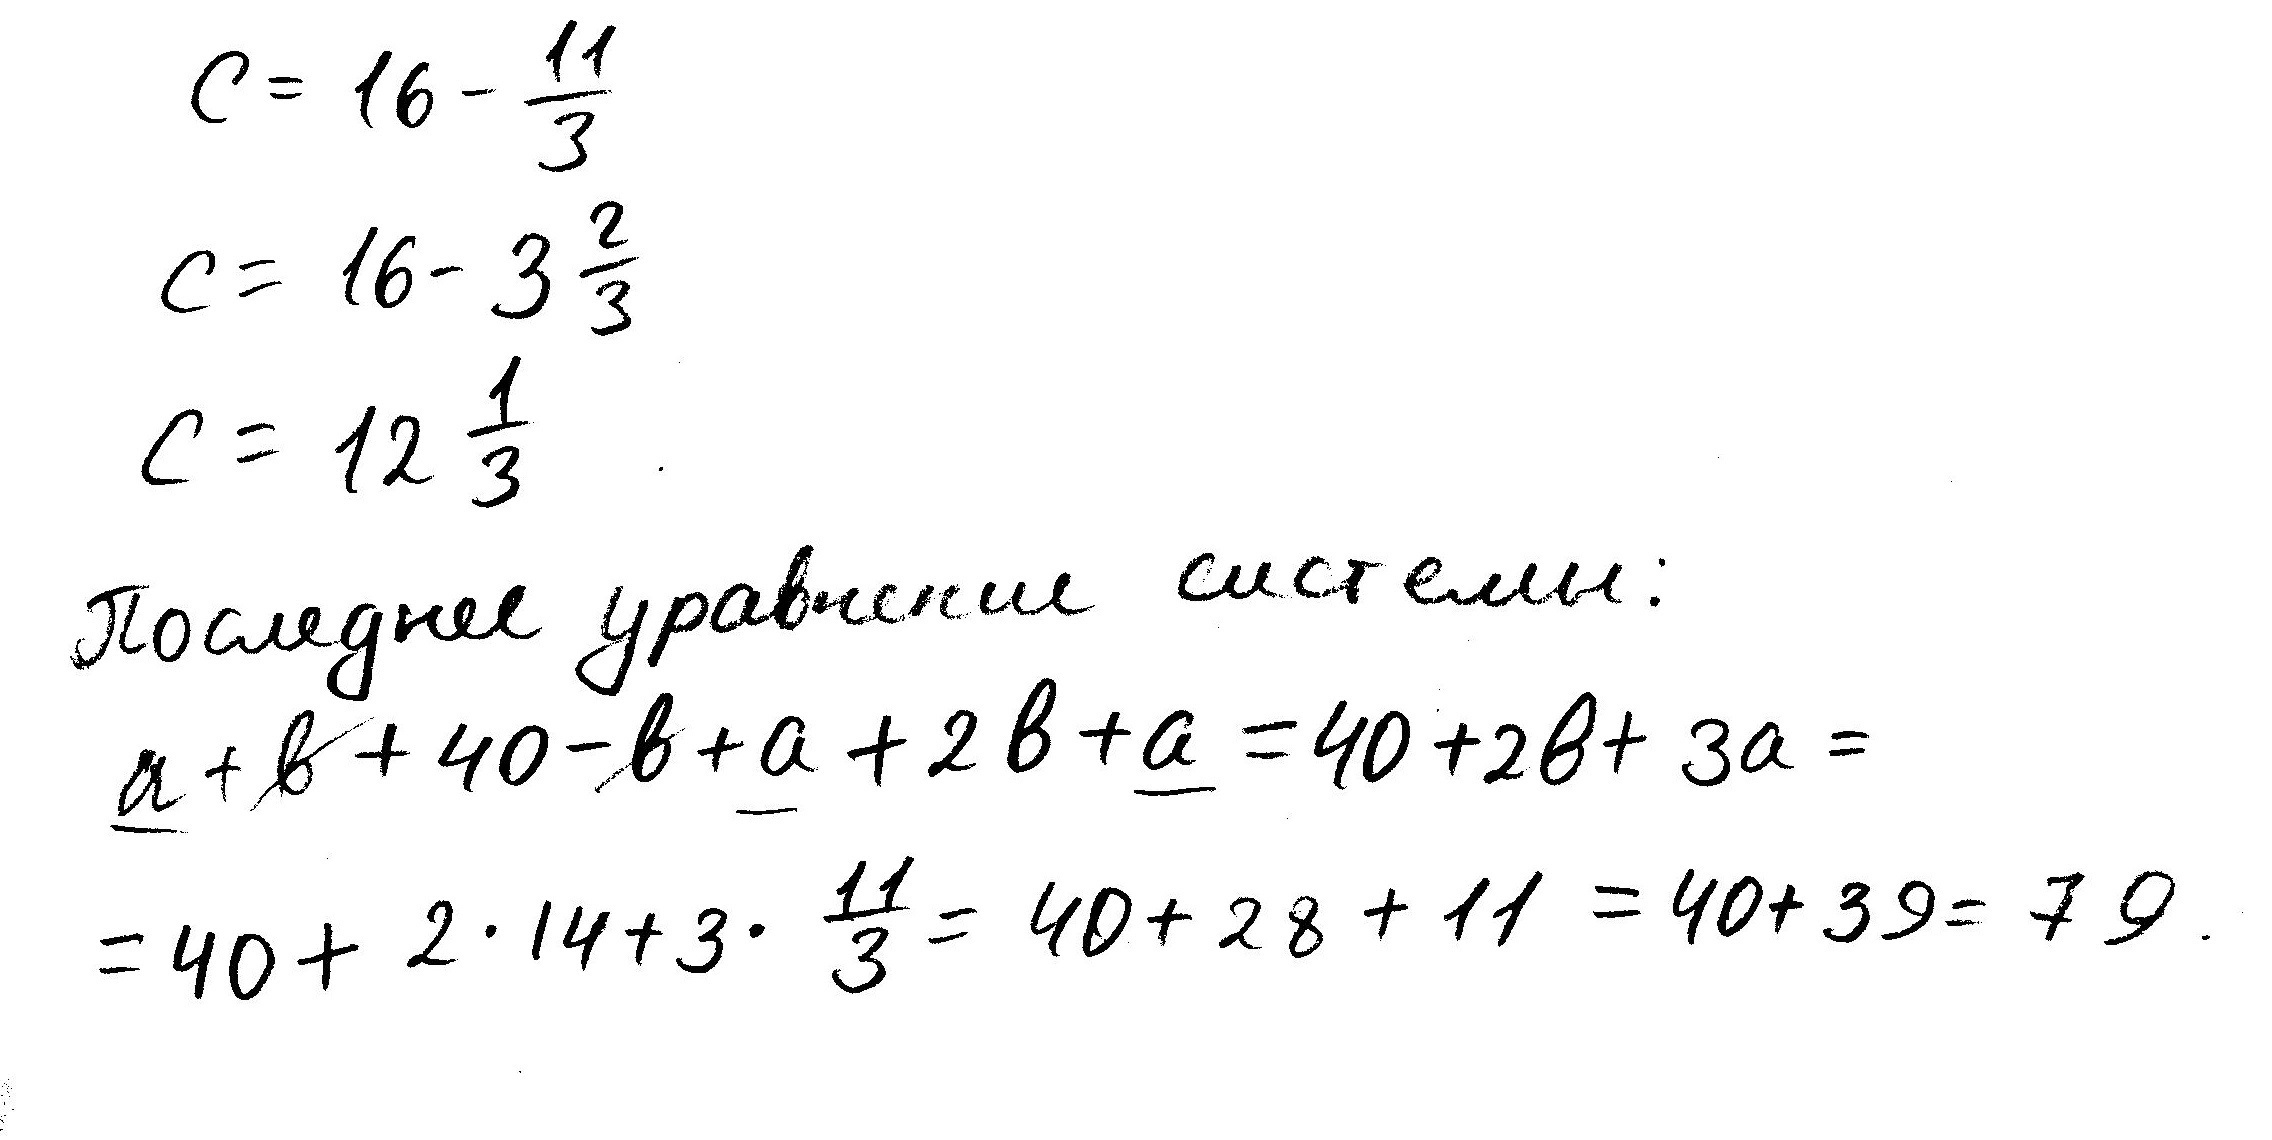 c = 16 - 11/3
c = 16 - 3 2/3
c = 12 1/3
Последнее уравнение системы:
a + b + 40 - b + a + 2b + a = 40 + 2b + 3a =
= 40 + 2 · 14 + 3 · 11/3 = 40 + 28 + 11 = 40 + 39 = 79.